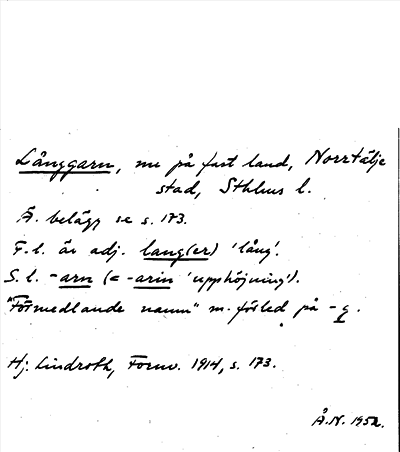 Långgarn, nu på fast land, Norrtälje
stad, Sthlms l.
Ä. belägg se s. 173.
F.l. är adj. lang(er) 'lång'.
S.l. -arn (= -arin 'upphöjning').
"Förmedlande namn" m. förled på -g.
Hj. Lindroth, Fornv. 1914, s. 173.
Å.N. 1952.